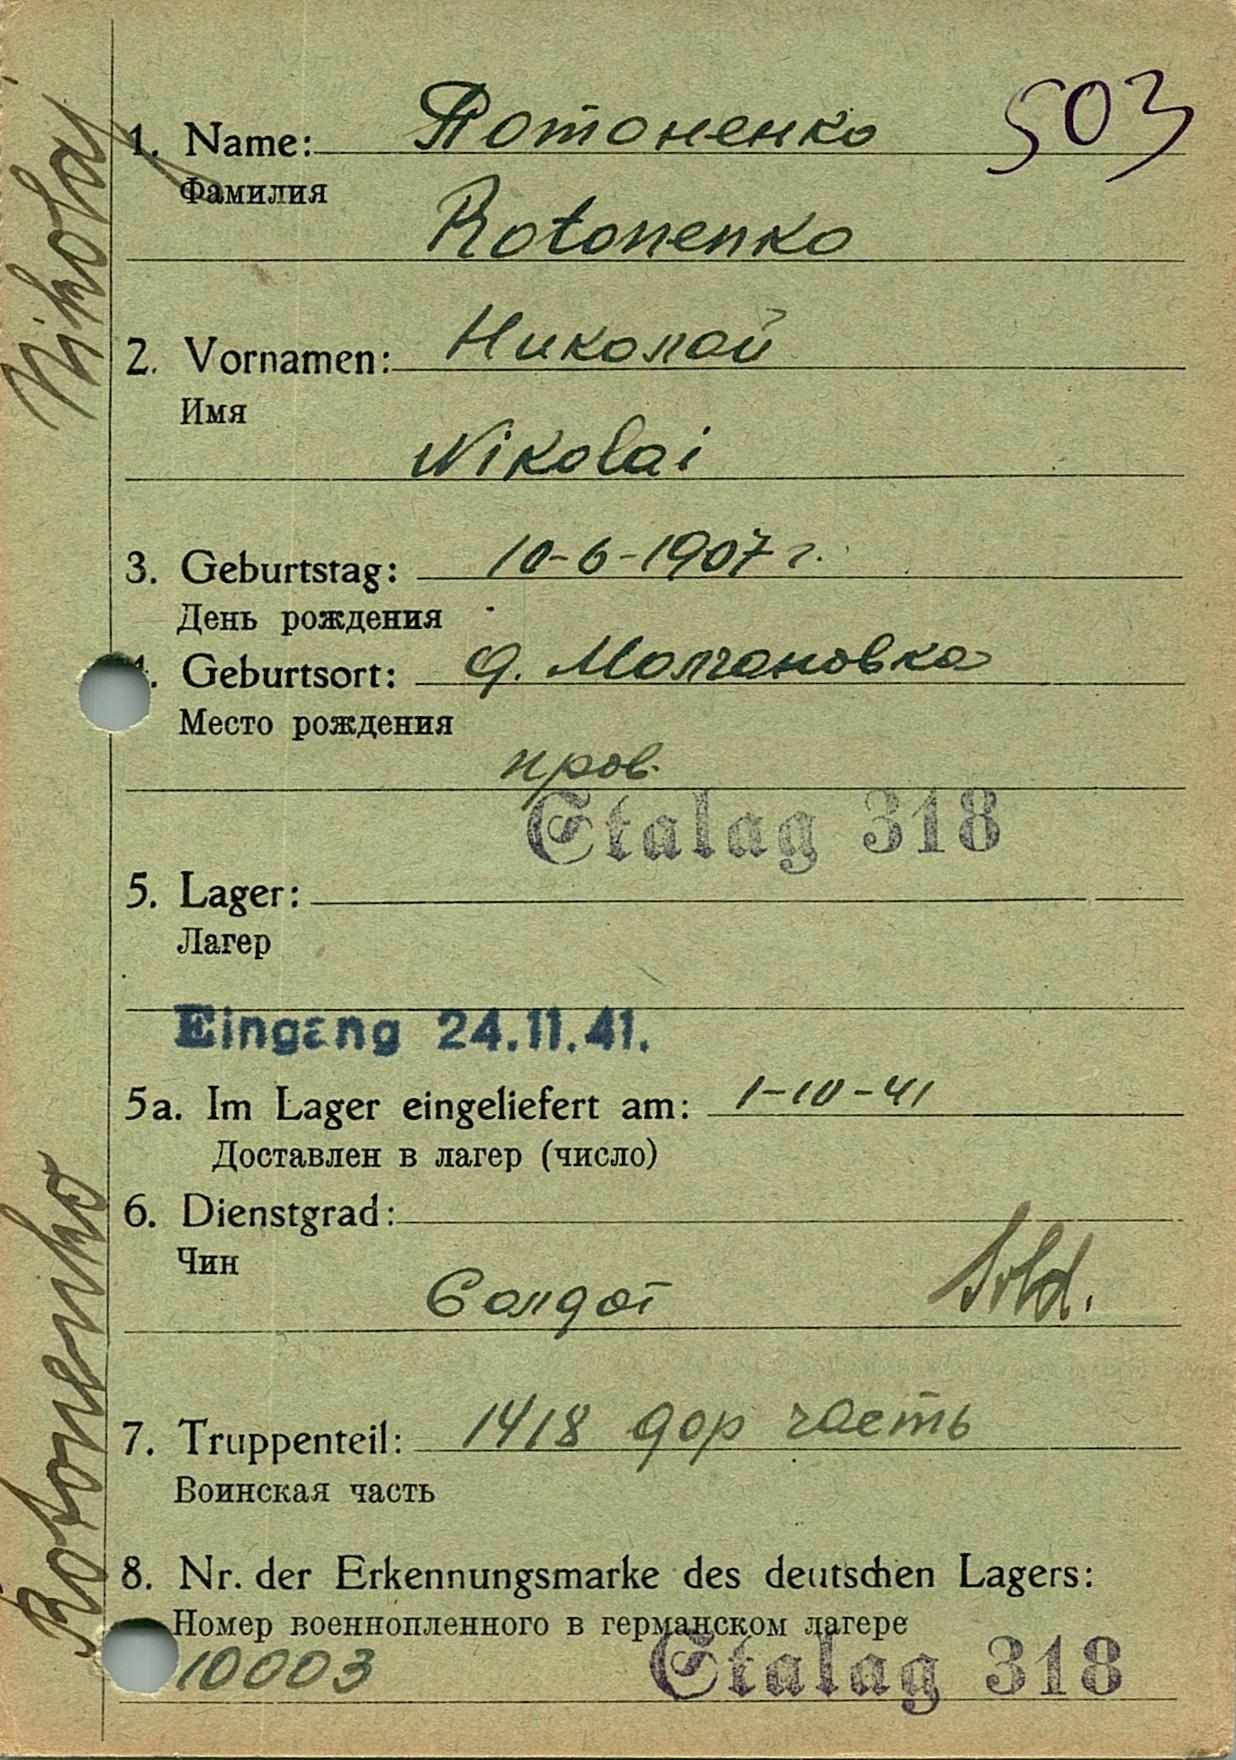 503
1. Name: Ротоненко
Фамилия
Rotonenko
2. Vornamen: Николай
Имя
Nikolai
3. Geburtstag: 10-6-1907 г.
День рождения
4. Geburtsort: д. Молчановка
Место рождения
пров.
Stalag 318
5. Lager:
Лагер
Eingang 24.11.41.
5a. Im Lager eingeliefert am: 1-10-41
Доставлен в лагер (число)
6. Dienstgrad:
Чин
Солдат Sold.
7. Truppenteil: 1418 дор часть
Воинская часть
8. Nr. der Erkennungsmarke des deutschen Lagers:
Номер военнопленного в германском лагере
10003 Stalag 318
Rotonenko Nikolaj